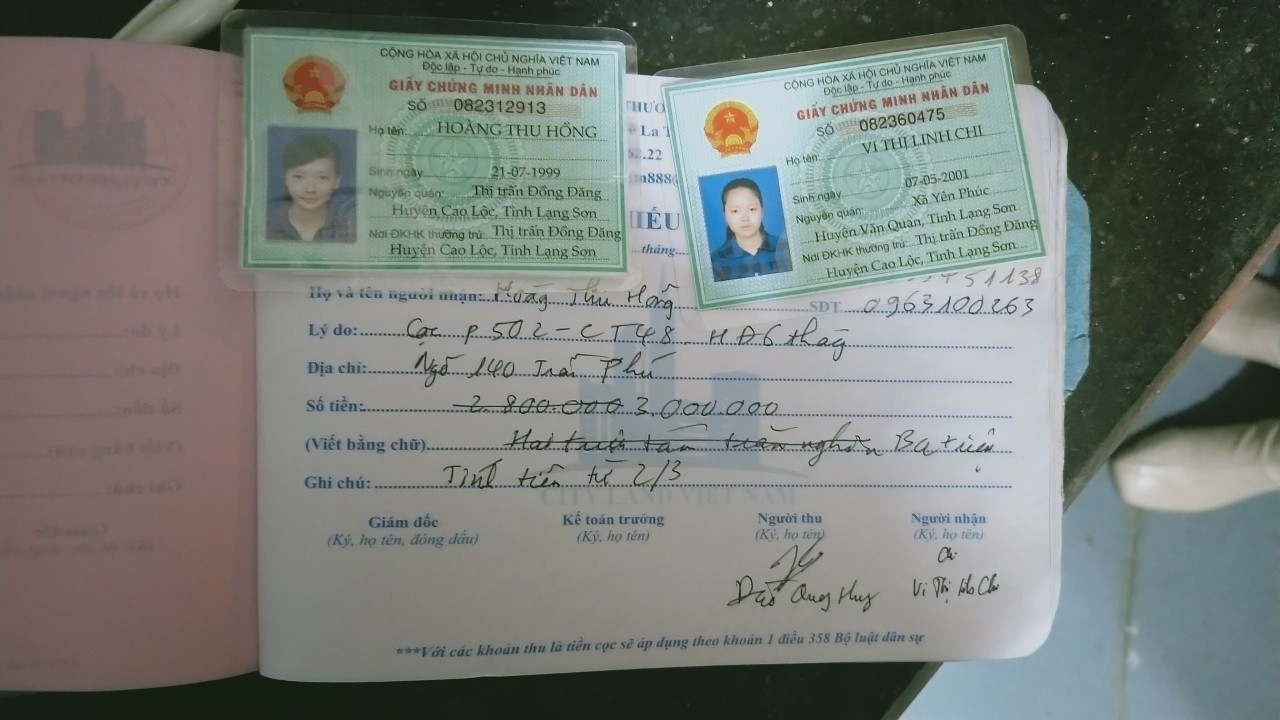 CỘNG HÒA XÃ HỘI CHỦ NGHĨA VIỆT NAM
Độc lập - Tự do - Hạnh phúc
GIẤY CHỨNG MINH NHÂN DÂN
SỐ 082312913
Họ tên: HOÀNG THU HỒNG
Sinh ngày 21-07-1999
Nguyên quán: Thị trấn Đồng Đăng
Huyện Cao Lộc, Tỉnh Lạng Sơn
Nơi ĐKHK thường trú: Thị trấn Đồng Đăng
Huyện Cao Lộc, Tỉnh Lạng Sơn
CỘNG HÒA XÃ HỘI CHỦ NGHĨA VIỆT NAM
Độc lập - Tự do - Hạnh phúc
GIẤY CHỨNG MINH NHÂN DÂN
SỐ 082360475
Họ tên: VI THỊ LINH CHI
Sinh ngày 07-05-2001
Nguyên quán: Xã Yên Phúc
Huyện Văn Quan, Tỉnh Lạng Sơn
Nơi ĐKHK thường trú: Thị trấn Đồng Đăng
Huyện Cao Lộc, Tỉnh Lạng Sơn
THƯƠ
La T
.22
m888@
IẾU
tháng
51138
Họ và tên người nhận: Hoàng Thu Hồng SĐT 0963100263
Lý do: Cọc P502 - CT48 HĐ 6 tháng
Địa chỉ: Ngõ 140 Trần Phú
Số tiền: 2.800.000 3.000.000
(Viết bằng chữ) Hai triệu tám trăm nghìn Ba triệu
Ghi chú: Tính tiền từ 2/3
CITY LAND VIET NAM
Giám đốc Kế toán trưởng Người thu Người nhận
(Ký, họ tên, đóng dấu) (Ký, họ tên) (Ký, họ tên) (Ký, họ tên)
Chi
Đào Quang Huy Vi Thị Linh Chi
***Với các khoản thu là tiền cọc sẽ áp dụng theo khoản 1 điều 358 Bộ luật dân sự